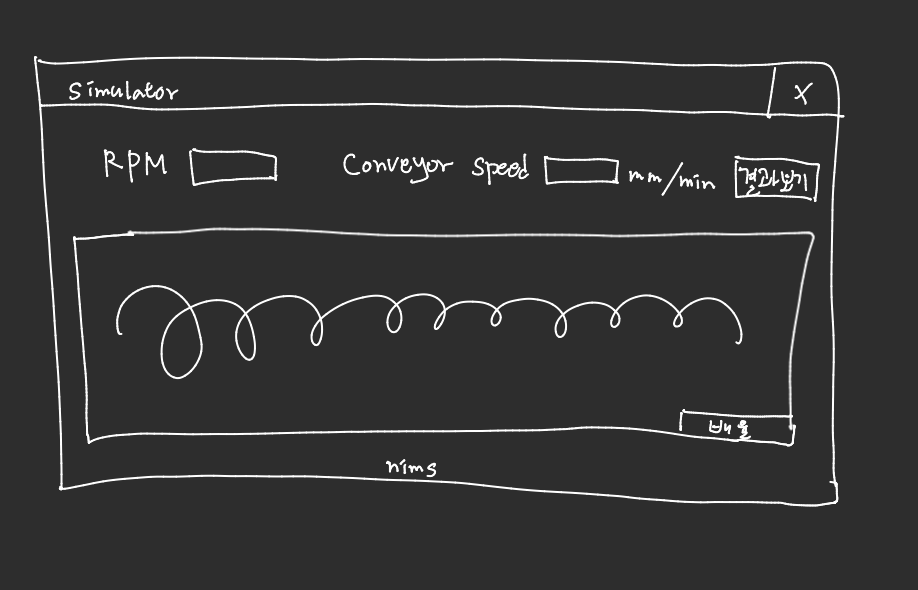 Simulator X
RPM Conveyor Speed mm/min 결과보기
배율
nims